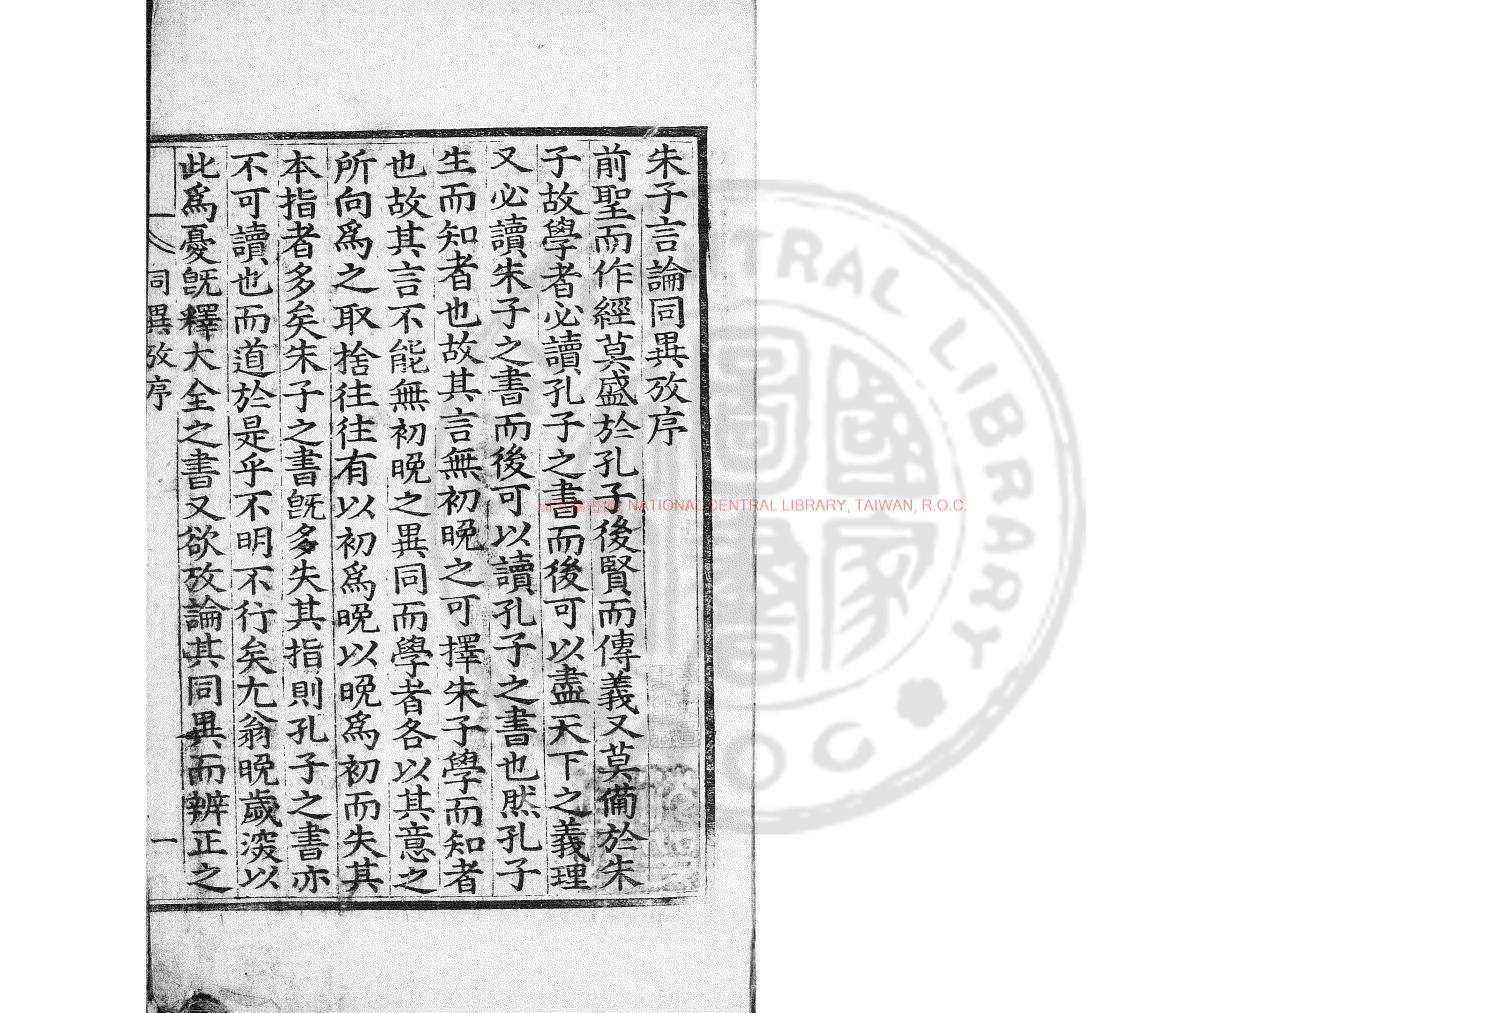 朱子言論同異攷序
前聖而作經莫盛於孔子後賢而傳義又莫備於朱
子故學者必讀孔子之書而後可以盡天下之義理
又必讀朱子之書而後可以讀孔子之書也然孔子
生而知者也故其言無初晚之可擇朱子學而知者
也故其言不能無初晚之異同而學者各以其意之
所向爲之取捨往往有以初爲晚以晚爲初而失其
本指者多矣朱子之書旣多失其指則孔子之書亦
不可讀也而道於是乎不明不行矣尢翁晚歲深以
此爲憂旣釋大全之書又欲攷論其同異而辨正之
同異攷序
一
NATIONAL CENTRAL LIBRARY, TAIWAN, R.O.C.